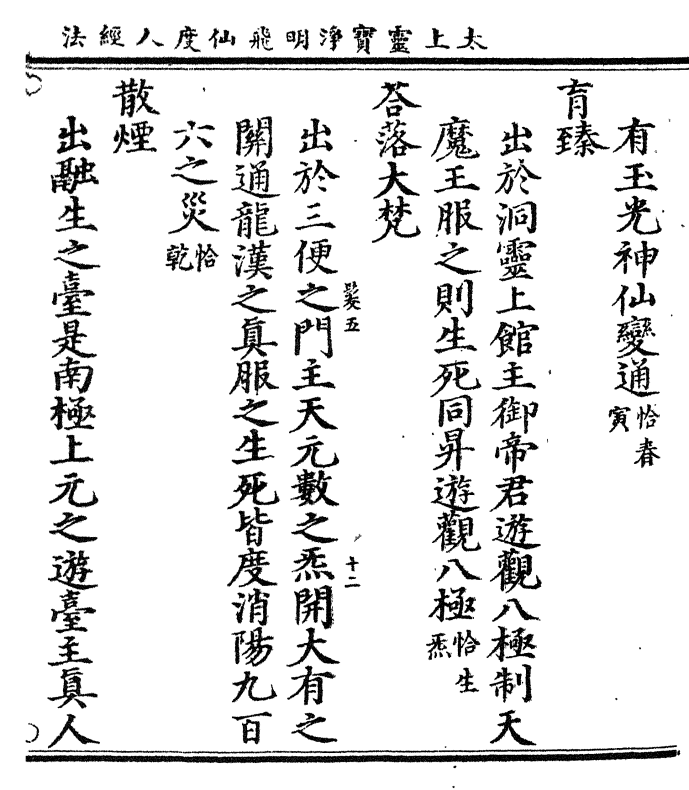 太上靈寶淨明飛仙度人經法
有玉光神仙變通恰春寅
育臻
出於洞靈上館主御帝君遊觀八極制天
魔王服之則生死同昇遊觀八極恰生炁
荅落大梵
髮五
十二
出於三便之門主天元數之炁開大有之
關通龍漢之眞服之生死皆度消陽九百
六之災恰乾
散煙
出融生之臺是南極上元之遊臺主眞人